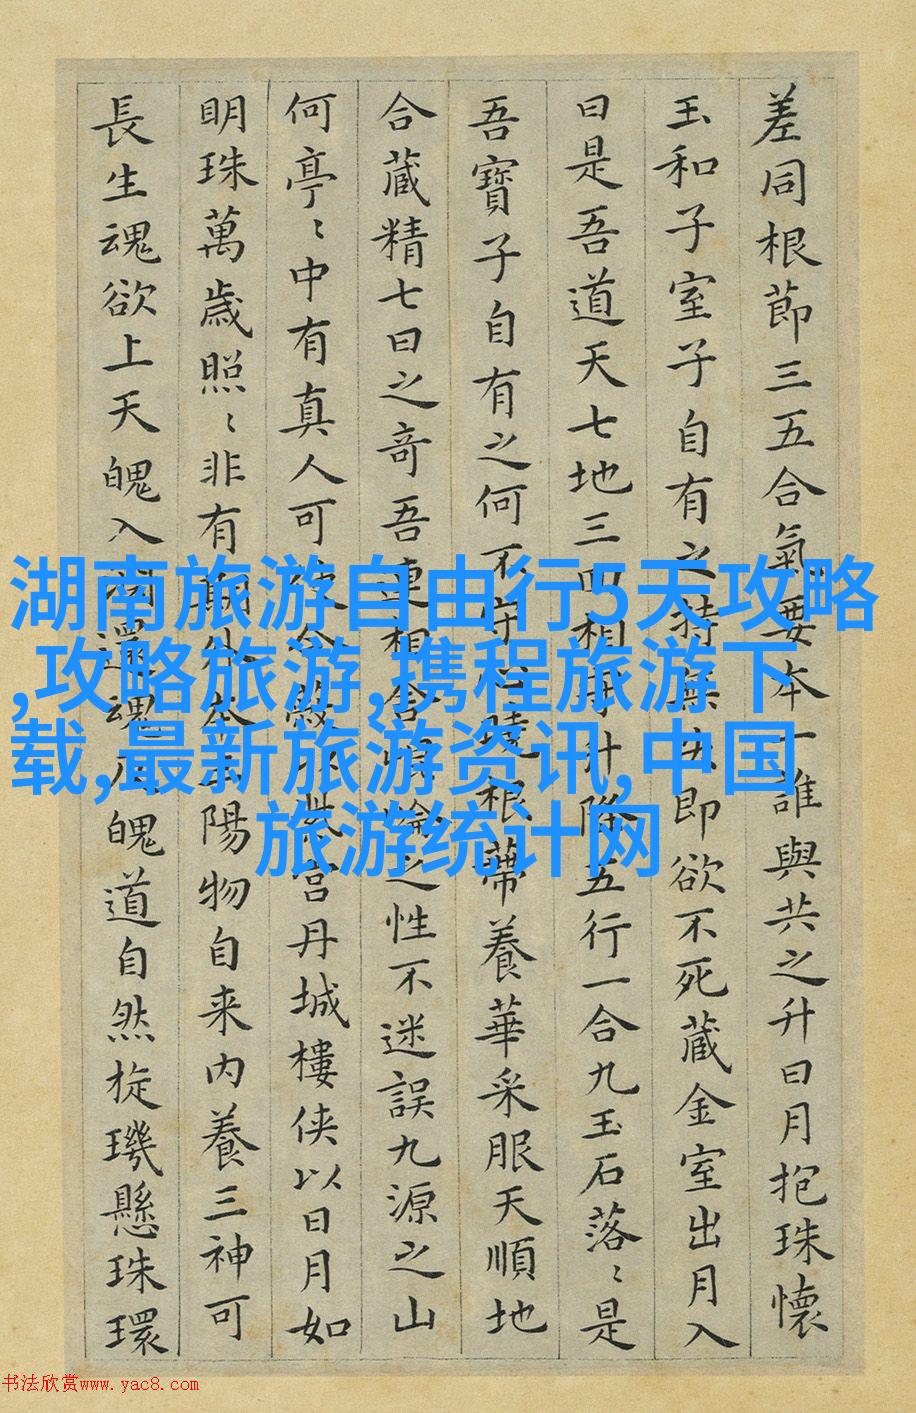 差同根節三五合氣要本一誰與共之升日月抱珠懷
玉和子室子自有之持無失即欲不死藏金室出月入
日是吾道天七地三四相守升降五行一合九玉石落〻是
吾寶子自有之何不守心曉根蔕養華采服天順地
合藏精七日之奇吾連相合崐崘之性不迷誤九源之山
何亭〻中有真人可使令蔽以紫宮丹城樓侠以日月如
明珠萬歲照〻非有期外本三陽物自来内養三神可
長生魂欲上天魄入淵還魂反魄道自然㫌璣懸珠環
湖南旅游自由行5天攻略
,攻略旅游,携程旅游下
载,最新旅游资讯,中国
旅游统计网
书法欣赏www.yac8.com